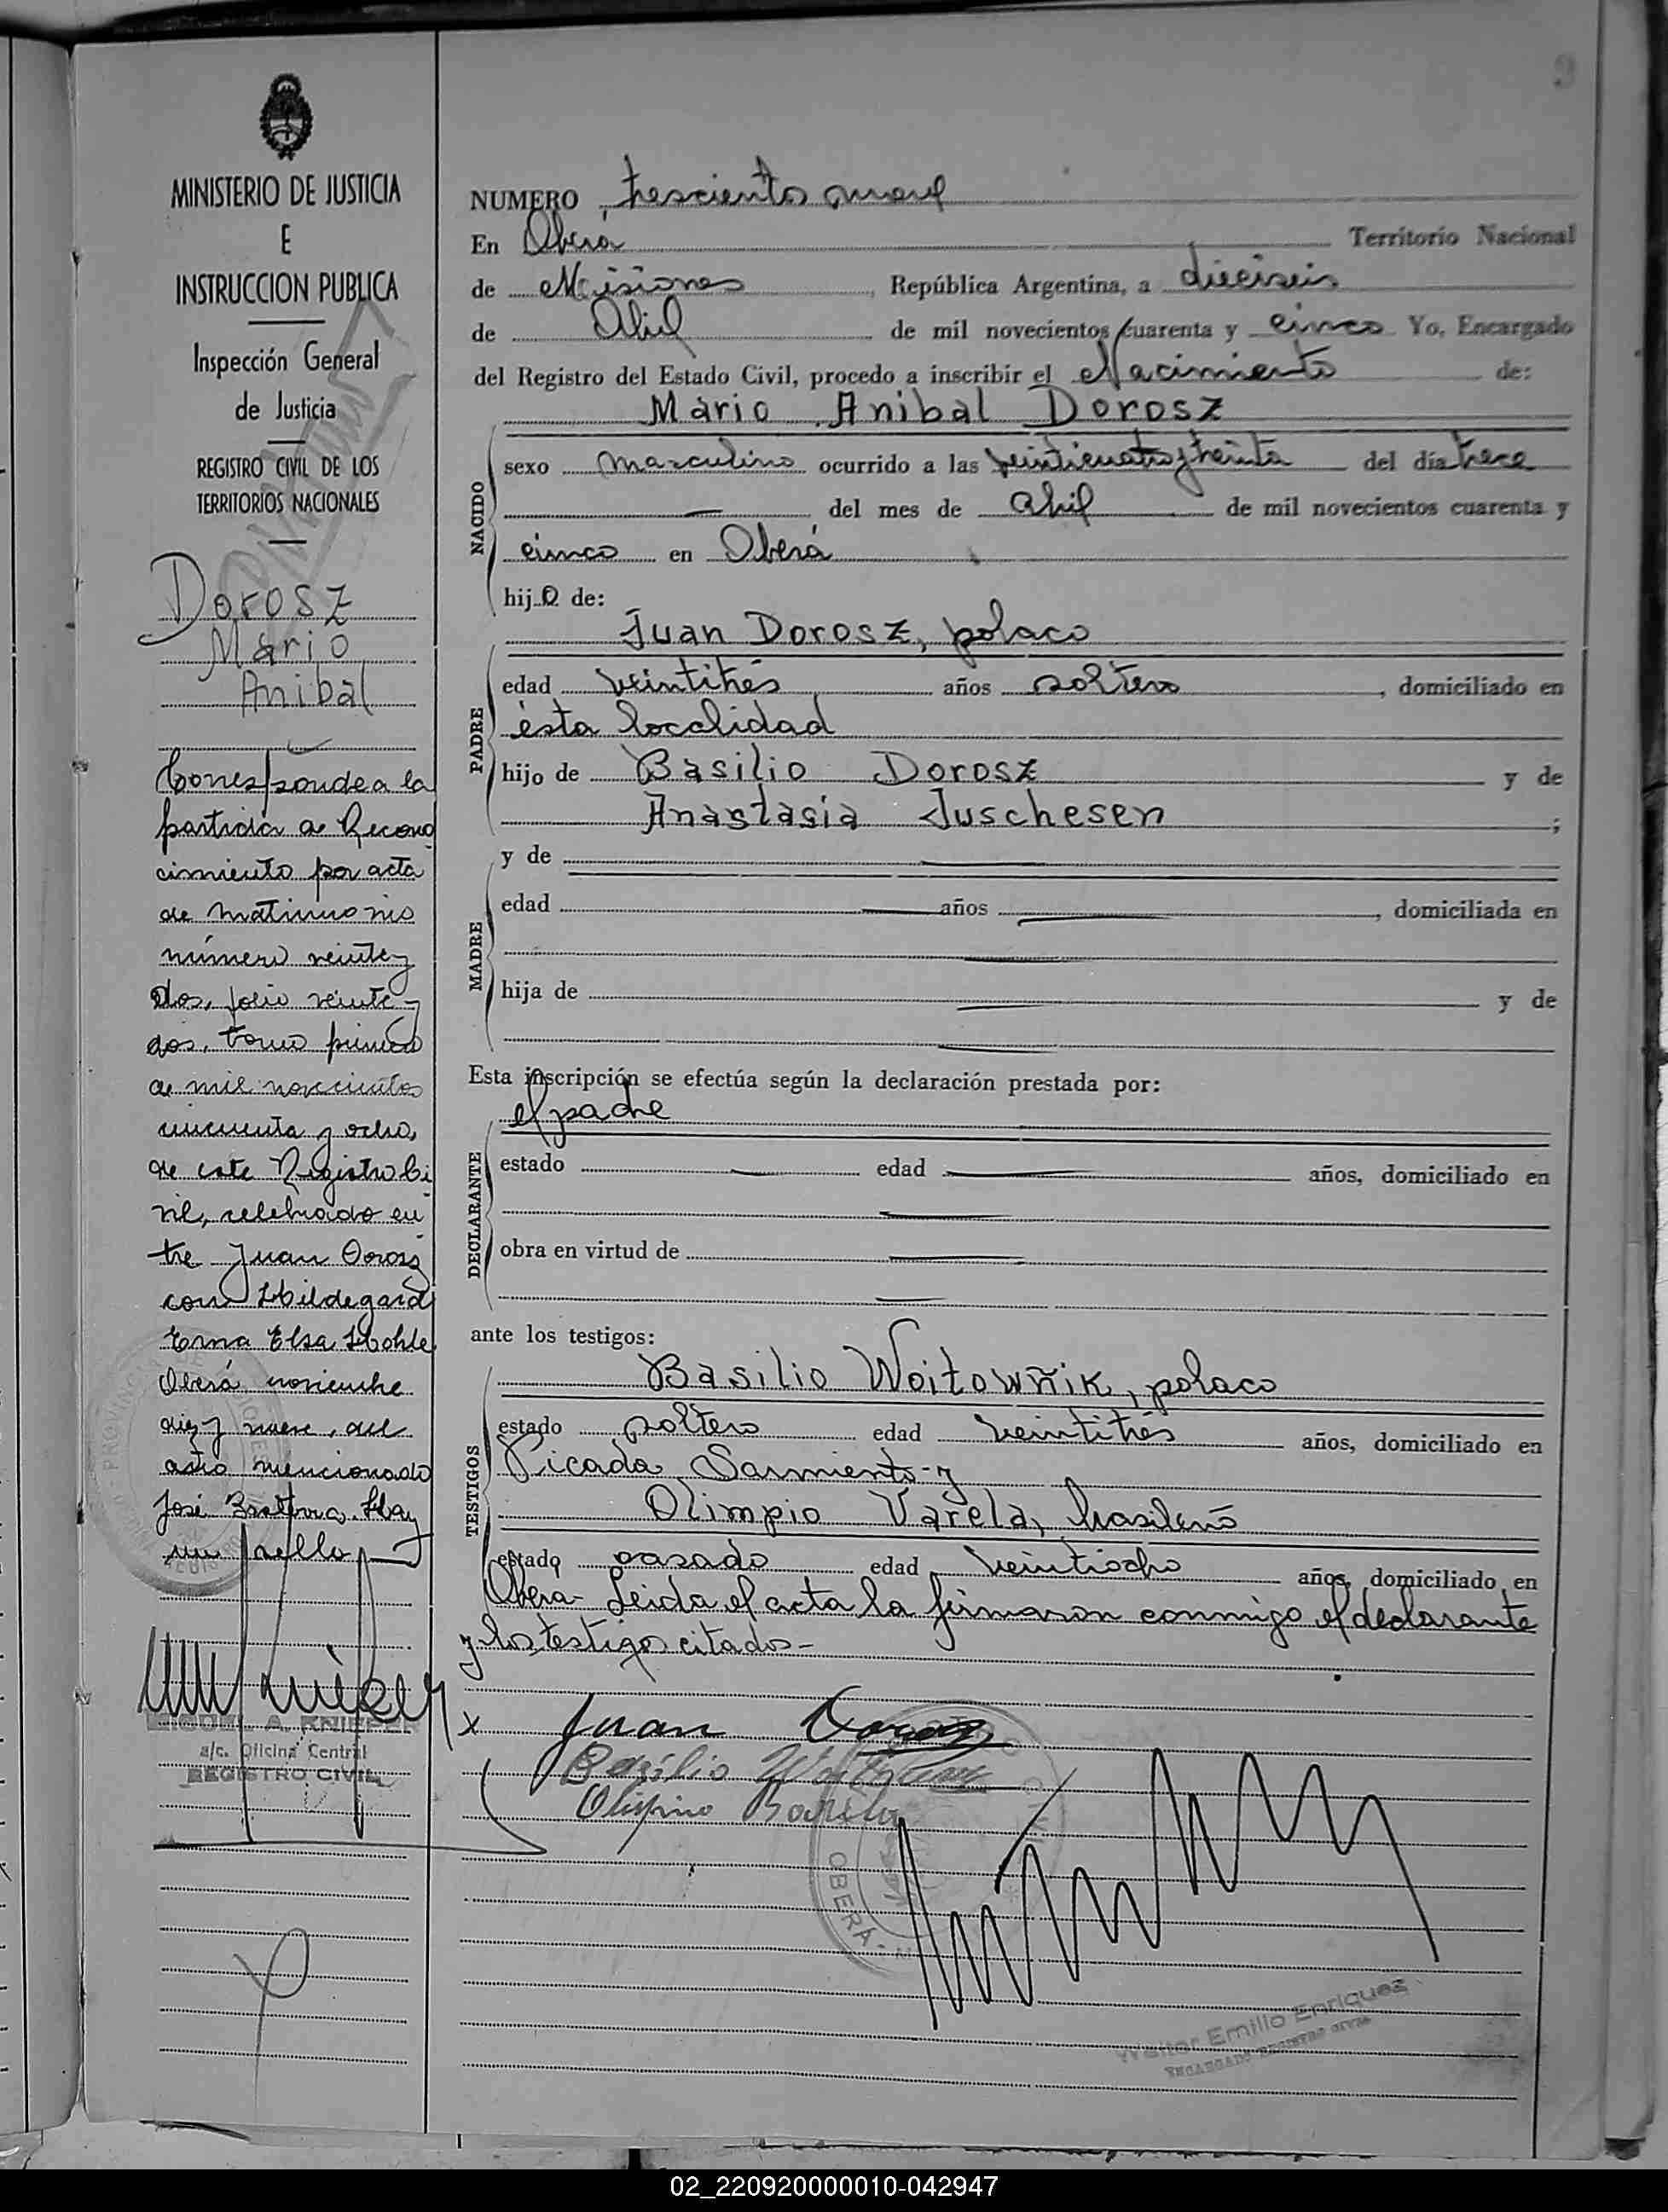 9
MINISTERIO DE JUSTICIA
E
INSTRUCCION PUBLICA
Inspección General
de Justicia
REGISTRO CIVIL DE LOS
TERRITORIOS NACIONALES
Dorosz
Mario
Anibal
Corresponde a la
partida de Recono
cimiento por acta
de matrimonio
número veinte y
dos, folio veinte y
dos, tomo primero
de mil novecientos
cincuenta y ocho,
de este Registro Ci
vil, celebrado en
tre Juan Dorosz
con Hildegard
Erna Elsa Hohle
Oberá noviembre
diez y nueve, del
año mencionado
José Hay
un sello
MIGUEL A. KNIEPER
a/c. Oficina Central
REGISTRO CIVIL
NUMERO trescientos nueve
En Oberá Territorio Nacional
de Misiones, República Argentina, a dieciseis
de Abril de mil novecientos cuarenta y cinco Yo, Encargado
del Registro del Estado Civil, procedo a inscribir el Nacimiento de:
Mario Anibal Dorosz
NACIDO
sexo masculino ocurrido a las veinticuatro y treinta del día trece
del mes de Abril de mil novecientos cuarenta y
cinco en Oberá
hijo de:
PADRE
Juan Dorosz, polaco
edad veintitrés años soltero, domiciliado en
ésta localidad
hijo de Basilio Dorosz y de
Anastasia Juschesen;
MADRE
y de
edad años, domiciliada en
hija de y de
Esta inscripción se efectúa según la declaración prestada por:
DECLARANTE
el padre
estado edad años, domiciliado en
obra en virtud de
ante los testigos:
TESTIGOS
Basilio Woitowñik, polaco
estado soltero edad veintitrés años, domiciliado en
Picada Sarmiento-y
Olimpio Varela, brasileño
estado casado edad veintiocho años, domiciliado en
Oberá- Leida el acta la firmaron conmigo el declarante
y los testigos citados-
x Juan Dorosz
Bazilio
Olispino Barela
OBERÁ
Walter Emilio Enriquez
ENCARGADO REGISTRO CIVIL
02_220920000010-042947